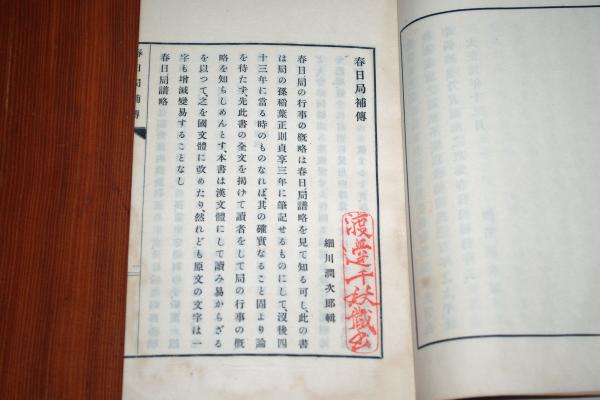 春日局補傳
細川潤次郎輯
春日局の行事の概略は春日局譜略を見て知る可し、此の書
は局の孫稲葉正則貞享三年に筆記せるものにして、沒後四
十三年に當る時のものなれば、其の確實なること固より論
を待たす、先此書の全文を揭けて讀者をして局の行事の概
略を知らしめんとす、本書は漢文體にして讀み易からざる
を以つて、之を國文體に改めたり、然れども原文の文字は一
字も增減變易することなし
春日局譜略
春日局補傳
渡邊千秋藏書